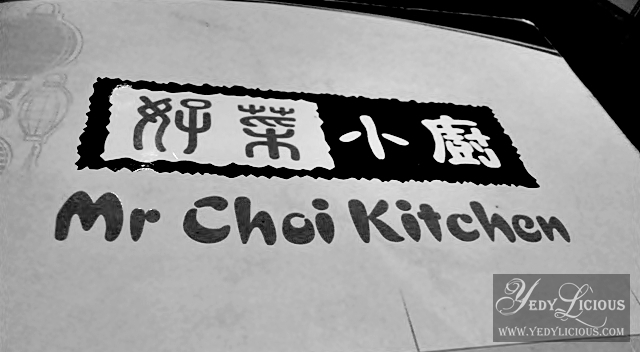 好菜小廚
Mr Choi Kitchen
YEDYLICIOUS
WWW.YEDYLICIOUS.COM